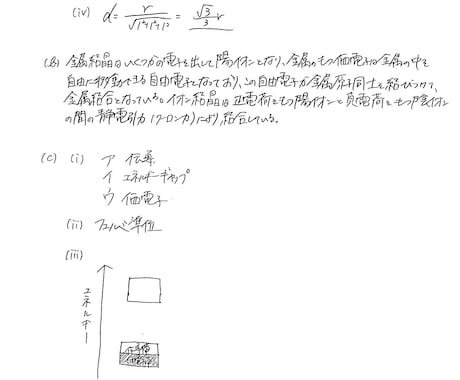 (iv) d = r/√(1²+1²+1²) = √3/3 r
(B) 金属結晶はいくつかの電子を出して陽イオンとなり、金属のもつ価電子が金属の中を
自由に移動できる自由電子となっており、この自由電子が金属原子同士を結びつけて、
金属結合となっている。イオン結晶は正電荷をもつ陽イオンと負電荷をもつ陰イオン
の間の静電引力(クーロン力)により結合している。
(C) (i) ア 伝導
イ エネルギーギャップ
ウ 価電子
(ii) フェルミ準位
(iii)
エネルギー